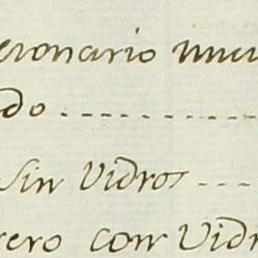 cionario nue
do
Sin Vidros
rero con Vidr